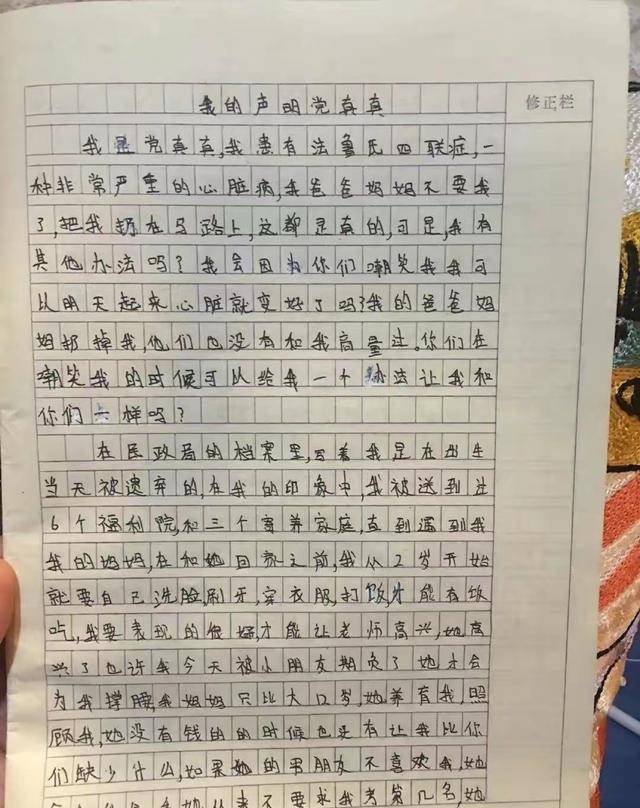 修正栏
我的声明党真真
我是党真真,我患有法鲁氏四联症,一
种非常严重的心脏病,我爸爸妈妈不要我
了,把我扔在马路上,这都是真的,可是,我有
其他办法吗?我会因为你们嘲笑我我可
以明天起来心脏就变好了吗?我的爸爸妈
妈扔掉我,他们也没有和我商量过。你们在
嘲笑我的时候可以给我一个办法让我和
你们一样吗?
在民政局的档案里,写着我是在出生
当天被遗弃的,在我的印象中,我被送到过
6个福利院,和三个寄养家庭,直到遇到我
我的妈妈,在和她回家之前,我从2岁开始
就要自己洗脸,刷牙,穿衣服,打饭,才能有饭
吃,我要表现的很好,才能让老师高兴,她高
兴了也许我今天被小朋友期负了她才会
为我撑腰,我妈妈只比大12岁,她养育我,照
顾我,她没有钱的的时候也没有让我比你
们缺少什么,如果她的男朋友不喜欢我,她
她从来不要求我考第几名她